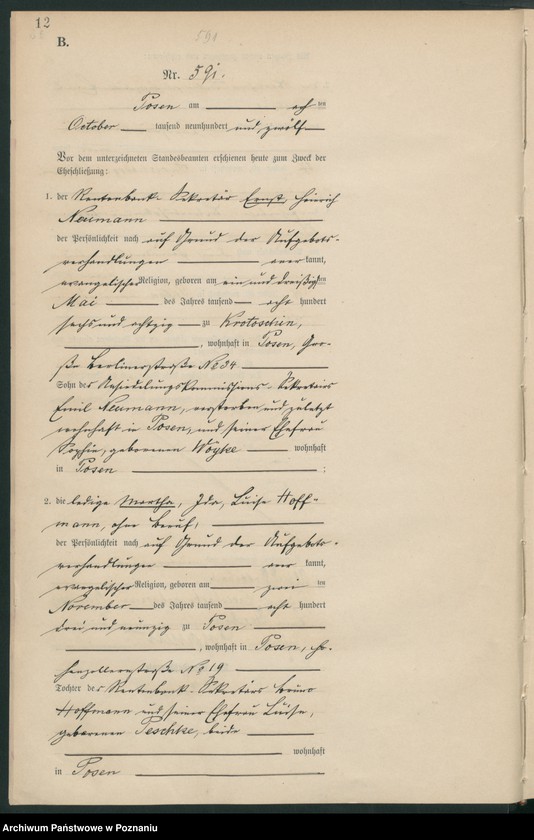 12
B.
591
Nr. 591.
Posen am acht ten
October tausend neunhundert und zwölf
Vor dem unterzeichneten Standesbeamten erschienen heute zum Zweck der
Eheschließung:
1. der Rentenbank-Sekretär Ernst, Heinrich
Neumann
der Persönlichkeit nach auf Grund der Aufgebots-
verhandlungen aner kannt,
evangelischer Religion, geboren am ein und dreißigsten
Mai des Jahres tausend acht hundert
sechs und achtzig zu Krotoschin,
, wohnhaft in Posen, Gro-
ße Berlinerstraße No 34
Sohn des Ansiedelungskommissions-Sekretairs
Emil Neumann, verstorben und zuletzt
wohnhaft in Posen, und seiner Ehefrau
Sophie, geborenen Woyke wohnhaft
in Posen ;
2. die ledige Martha, Ida, Luise Hoff-
mann, ohne Beruf,
der Persönlichkeit nach auf Grund der Aufgebots-
verhandlungen aner kannt,
evangelischer Religion, geboren am zwei ten
November des Jahres tausend acht hundert
drei und neunzig zu Posen
, wohnhaft in Posen, Ho-
henzollernstraße No 19
Tochter des Rentenbank-Sekretärs Bruno
Hoffmann und seiner Ehefrau Luise,
geborenen Peschke, beide
wohnhaft
in Posen
Archiwum Państwowe w Poznaniu